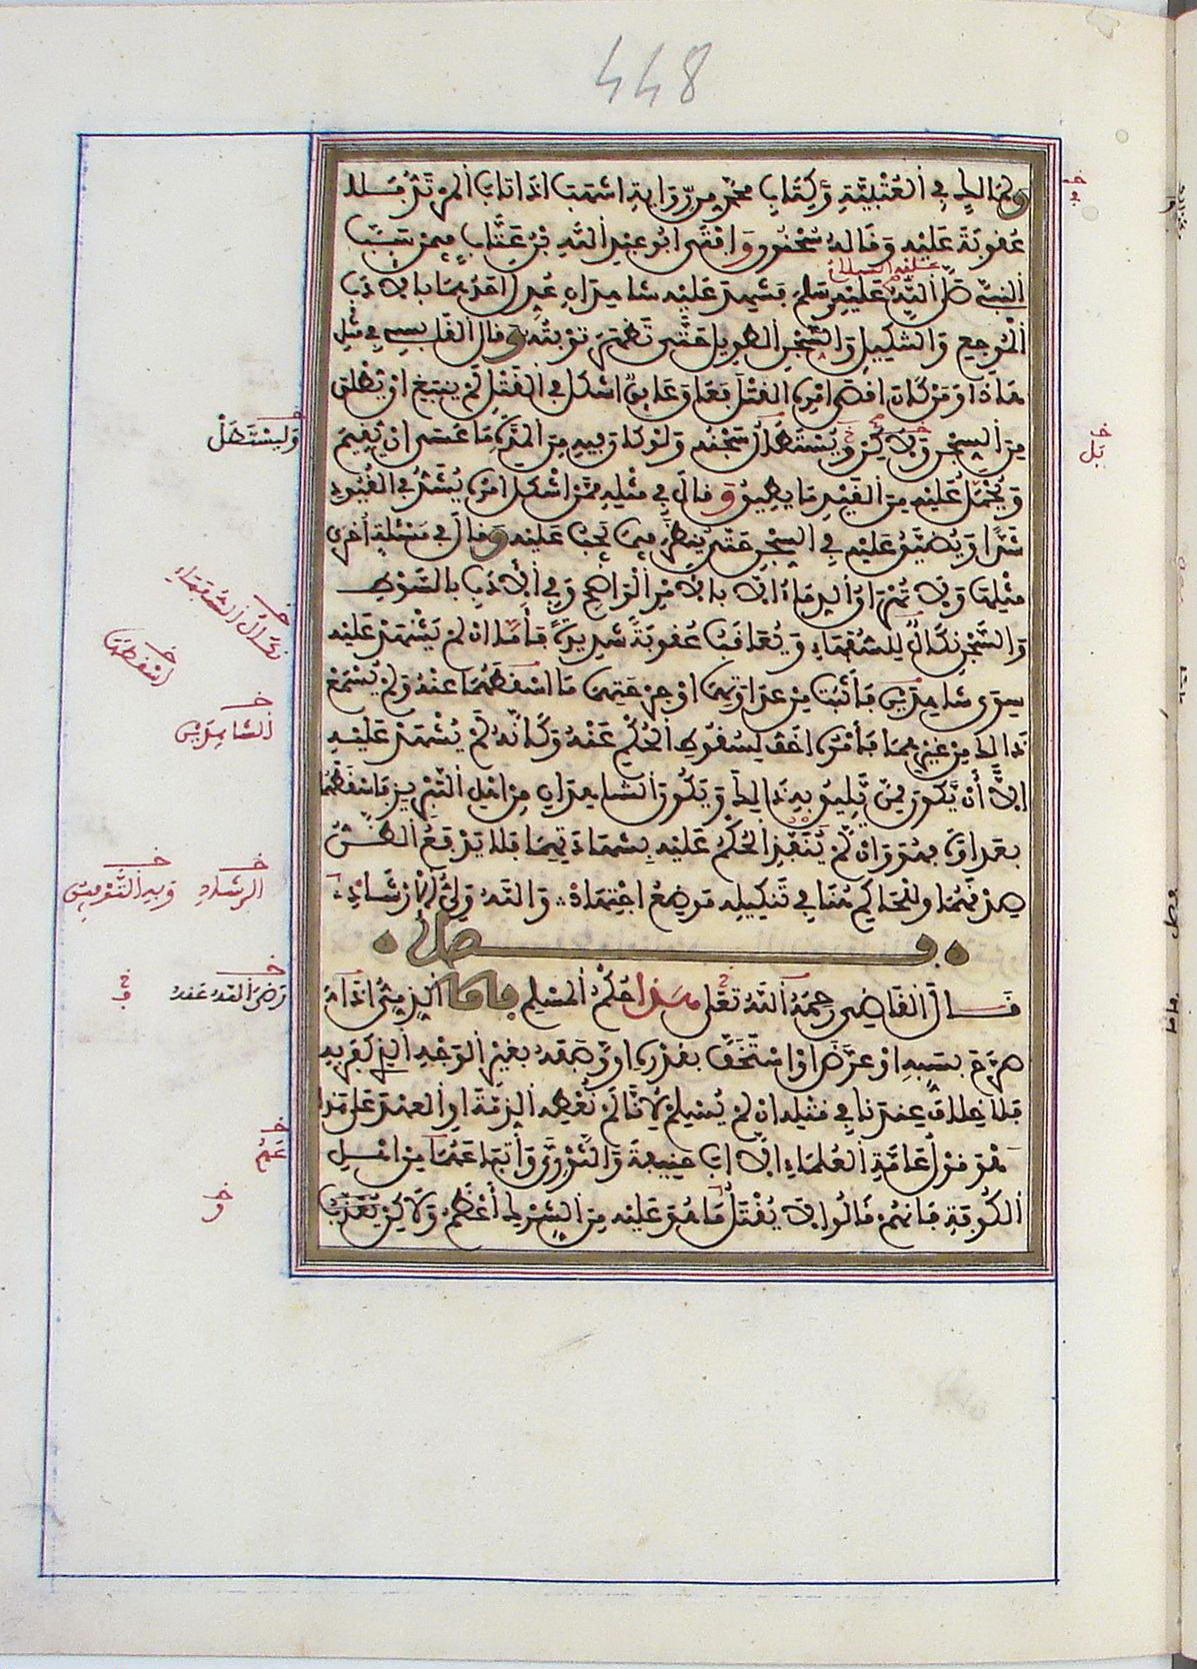 448
ولمالك في العتبية وكتاب محمد من رواية اشهب اذا تاب المرتد فلا
عقوبة عليه وقاله سحنون وافتى ابو عبد الله بن عتاب فيمن سب
النبي صلى الله عليه وسلم فشهد عليه شاهدان عدل احدهما بالادب
الموجع والتنكيل والسجن الطويل حتى تظهر توبته وقال القابسي في مثل
هاذا ومن كان اقصى امره القتل فعاق عايق اشكل في القتل لم ينبغ ان يطلق
من السجن ولاكن يستطال سجنه ولو كان فيه من المدة ما عسى ان يقيم
ويحمل عليه من القيد ما يطيق وقال في مثله ممن اشكل امره يشد في القيود
شدا ويضيق عليه في السجن حتى ينظر فيما يجب عليه وقال في مسئلة اخرى
مثلها ولا تهراق الدماء الا بالامر الواضح وفي الادب بالسوط
والسجن نكال للسفهاء ويعاقب عقوبة شديدة فاما ان لم يشهد عليه
سوى شاهدين فاثبت من عداوتهما او جرحتهما ما اسقطهما عنه ولم يسمع
ذالك من غيرهما فامره اخف لسقوط الحكم عنه وكانه لم يشهد عليه
الا ان يكون ممن يليق به ذالك ويكون الشاهدان من اهل التبريز فاسقطهما
بعداوة فهو وان لم ينفذ الحكم عليه بشهادتهما فلا يدفع الظن
صدقهما وللحاكم هنا في تنكيله موضع اجتهاد والله ولي الارشاد
فصل
قال القاضي رحمه الله تعلى هذا حكم المسلم فاما الذمي اذا
صرح بسبه او عرض او استخف بقدره او وصفه بغير الوجه الذي كفر به
فلا خلاف عندنا في قتله ان لم يسلم لانا لم نعطه الذمة او العهد على هذا
هو قول عامة العلماء الا ابا حنيفة والثوري واتباعهما من اهل
الكوفة فانهم قالوا لا يقتل ما هو عليه من الشرك اعظم ولاكن يعزر
خ
خ
بل
وليستطل
خ
نكال السفهاء
خ
اسقطها
خ
الشاهدين
خ
الرشاد
خ
خ
رضي الله عنه
خ
عم
خ
و